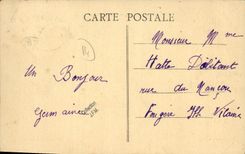 CARTE POSTALE
Un Bonjour
Monsieur Mme
Halte Débitant
rue du Nançon
Fougère Ille Vilaine